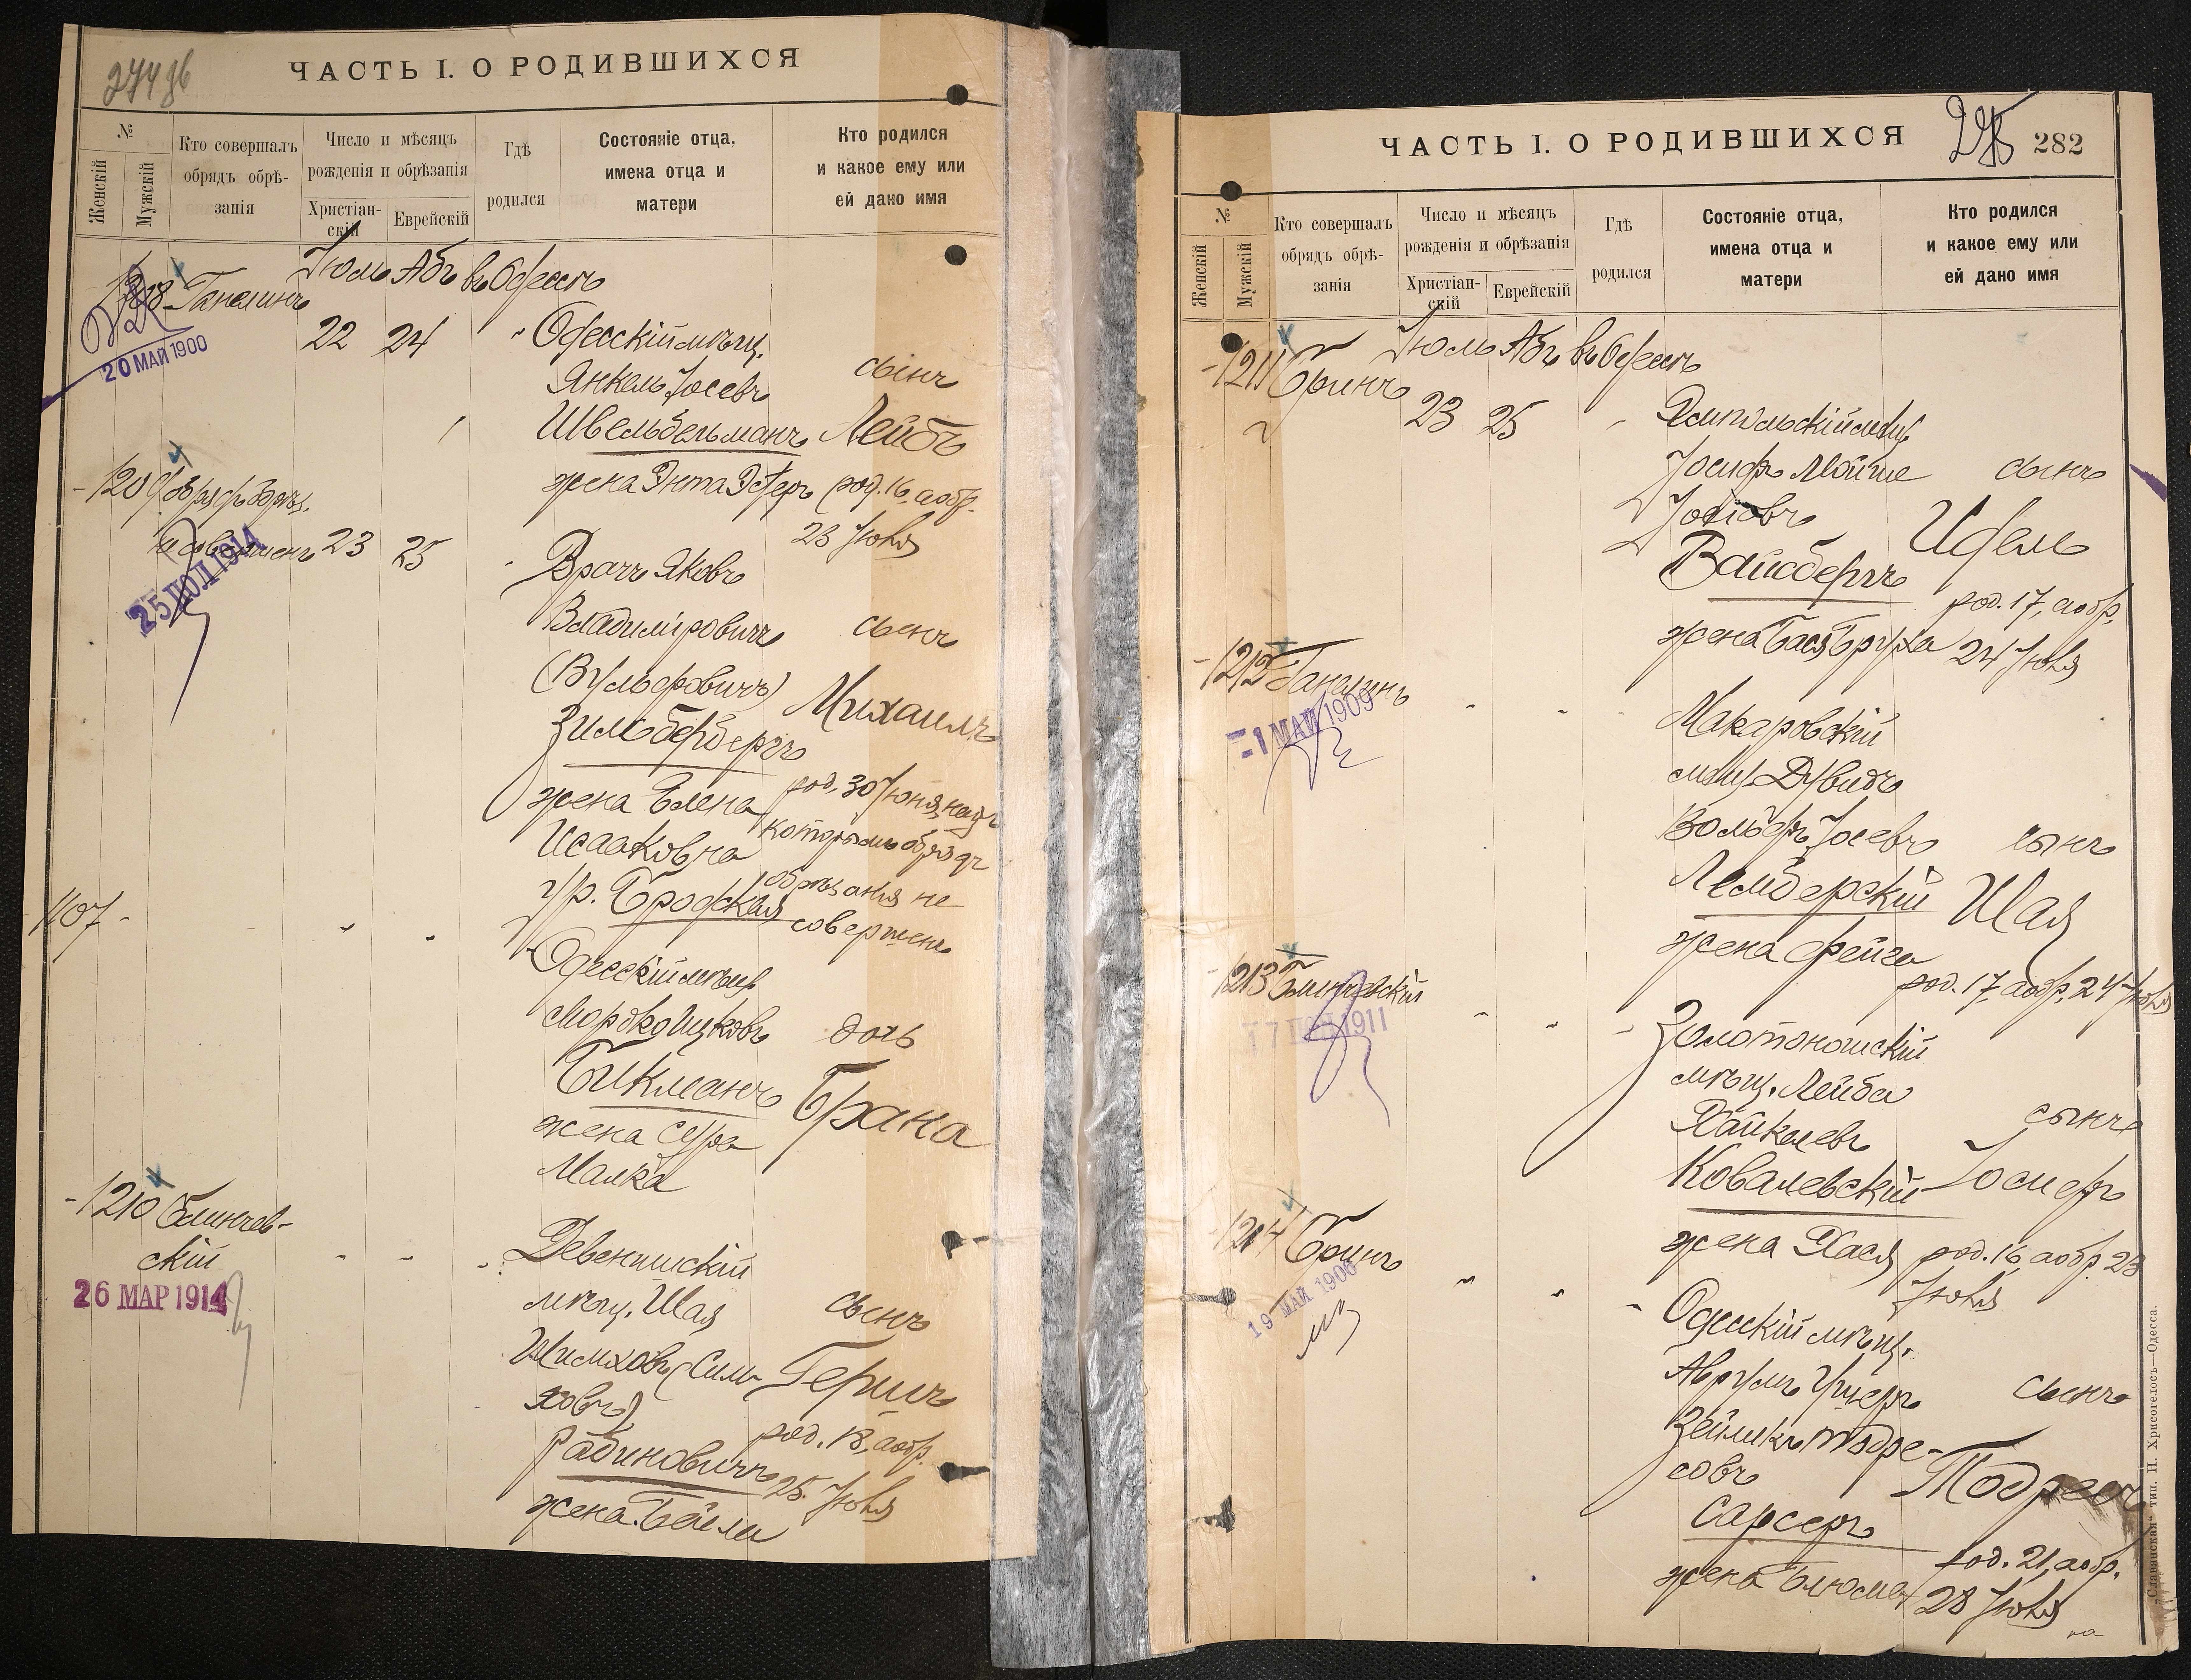 274 об
ЧАСТЬ I. О РОДИВШИХСЯ
№
Женскій
Мужскій
Кто совершалъ обрядъ обрѣ-
занія
Число и мѣсяцъ
рожденія и обрѣзанія
Христіан-
скій
Еврейскій
Гдѣ
родился
Состояніе отца,
имена отца и
матери
Кто родился
и какое ему или
ей дано имя
Іюль Абъ въ Одессѣ
1208 Ганелинъ
22 24 " Одесскій мѣщ.
20 МАЙ 1900
Янкель Іосевъ сынъ
Швельбельманъ Лейбъ
жена Энта Эстеръ род. 16, а обр.
23 Іюля
-1209 Обрядъ обрѣз.
не совершенъ 23 25 Врачъ Яковъ
25 1914
Владиміровичъ сынъ
(Вульфовичъ) Михаилъ
Зильберберъ
жена Елена род. 30 Іюня, надъ
Исааковна которымъ обрядъ
ур. Бродская обрѣзанія не
совершенъ
1107 - " " Одесскій мѣщ.
Мордко Ицковъ дочь
Бикманъ Брана
жена Сура
Малка
-1210 Блинчев-
скій " " " Девенишскій
26 МАР 1914
мѣщ. Шая сынъ
Шимховъ (Сим- Гершъ
ховъ)
Рабиновичъ род. 18, а обр.
25 Іюля
жена Бейла
ЧАСТЬ I. О РОДИВШИХСЯ
275
282
№
Женскій
Мужскій
Кто совершалъ
обрядъ обрѣ-
занія
Число и мѣсяцъ
рожденія и обрѣзанія
Христіан-
скій
Еврейскій
Гдѣ
родился
Состояніе отца,
имена отца и
матери
Кто родился
и какое ему или
ей дано имя
Іюль Абъ въ Одессѣ
-1211 Бринъ
23 25 Ямпольскій мѣщ.
Іосифъ Мойше сынъ
Іосіовъ Идель
Вайсбергъ
род. 17, а обр.
жена Бася Бруха 24 Іюля
-1212 Ганелинъ " " Макаровскій
1 МАЙ 1909
мѣщ. Дувидъ
Вольфъ Іосевъ сынъ
Лемберскій Шая
жена Фейга
род. 17, а обр. 24 Іюля
-1213 Блинчевскій " " " Золотоношскій
1911
мѣщ. Лейба
Хайкелевъ сынъ
Ковалевскій Іосифъ
жена Хася род. 16, а обр. 23
Іюля
-1214 Бринъ " " " Одесскій мѣщ.
19 МАЙ 1906
Аврумъ Ушеръ сынъ
Зейликъ Тодре-
совъ Тодресъ
Сарсеръ
род. 21, а обр.
жена Блюма 28 Іюля
„Славянская“ тип. Н. Хрисогелосъ—Одесса.